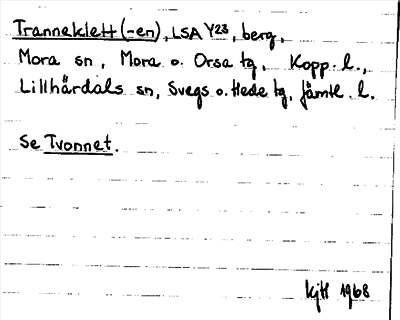 Tranneklett (-en), LSA Y23, berg,
Mora sn, Mora o. Orsa tg, Kopp. l.,
Lillhärdals sn, Svegs o. Hede tg, Jämtl. l.
Se Tvonnet.
KjH 1968